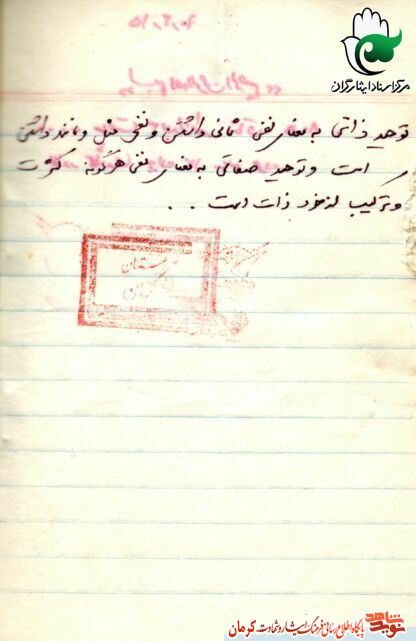 مرکز اسناد ایثارگران
توحید ذاتی به معنای نفی ثانی داشتن و نفی مثل و مانند داشتن
است و توحید صفاتی به معنای نفی هرگونه کثرت
و ترکیب از خود ذات است . .
نوید شاهد
پایگاه اطلاع رسانی فرهنگ ایثار و شهادت کرمان